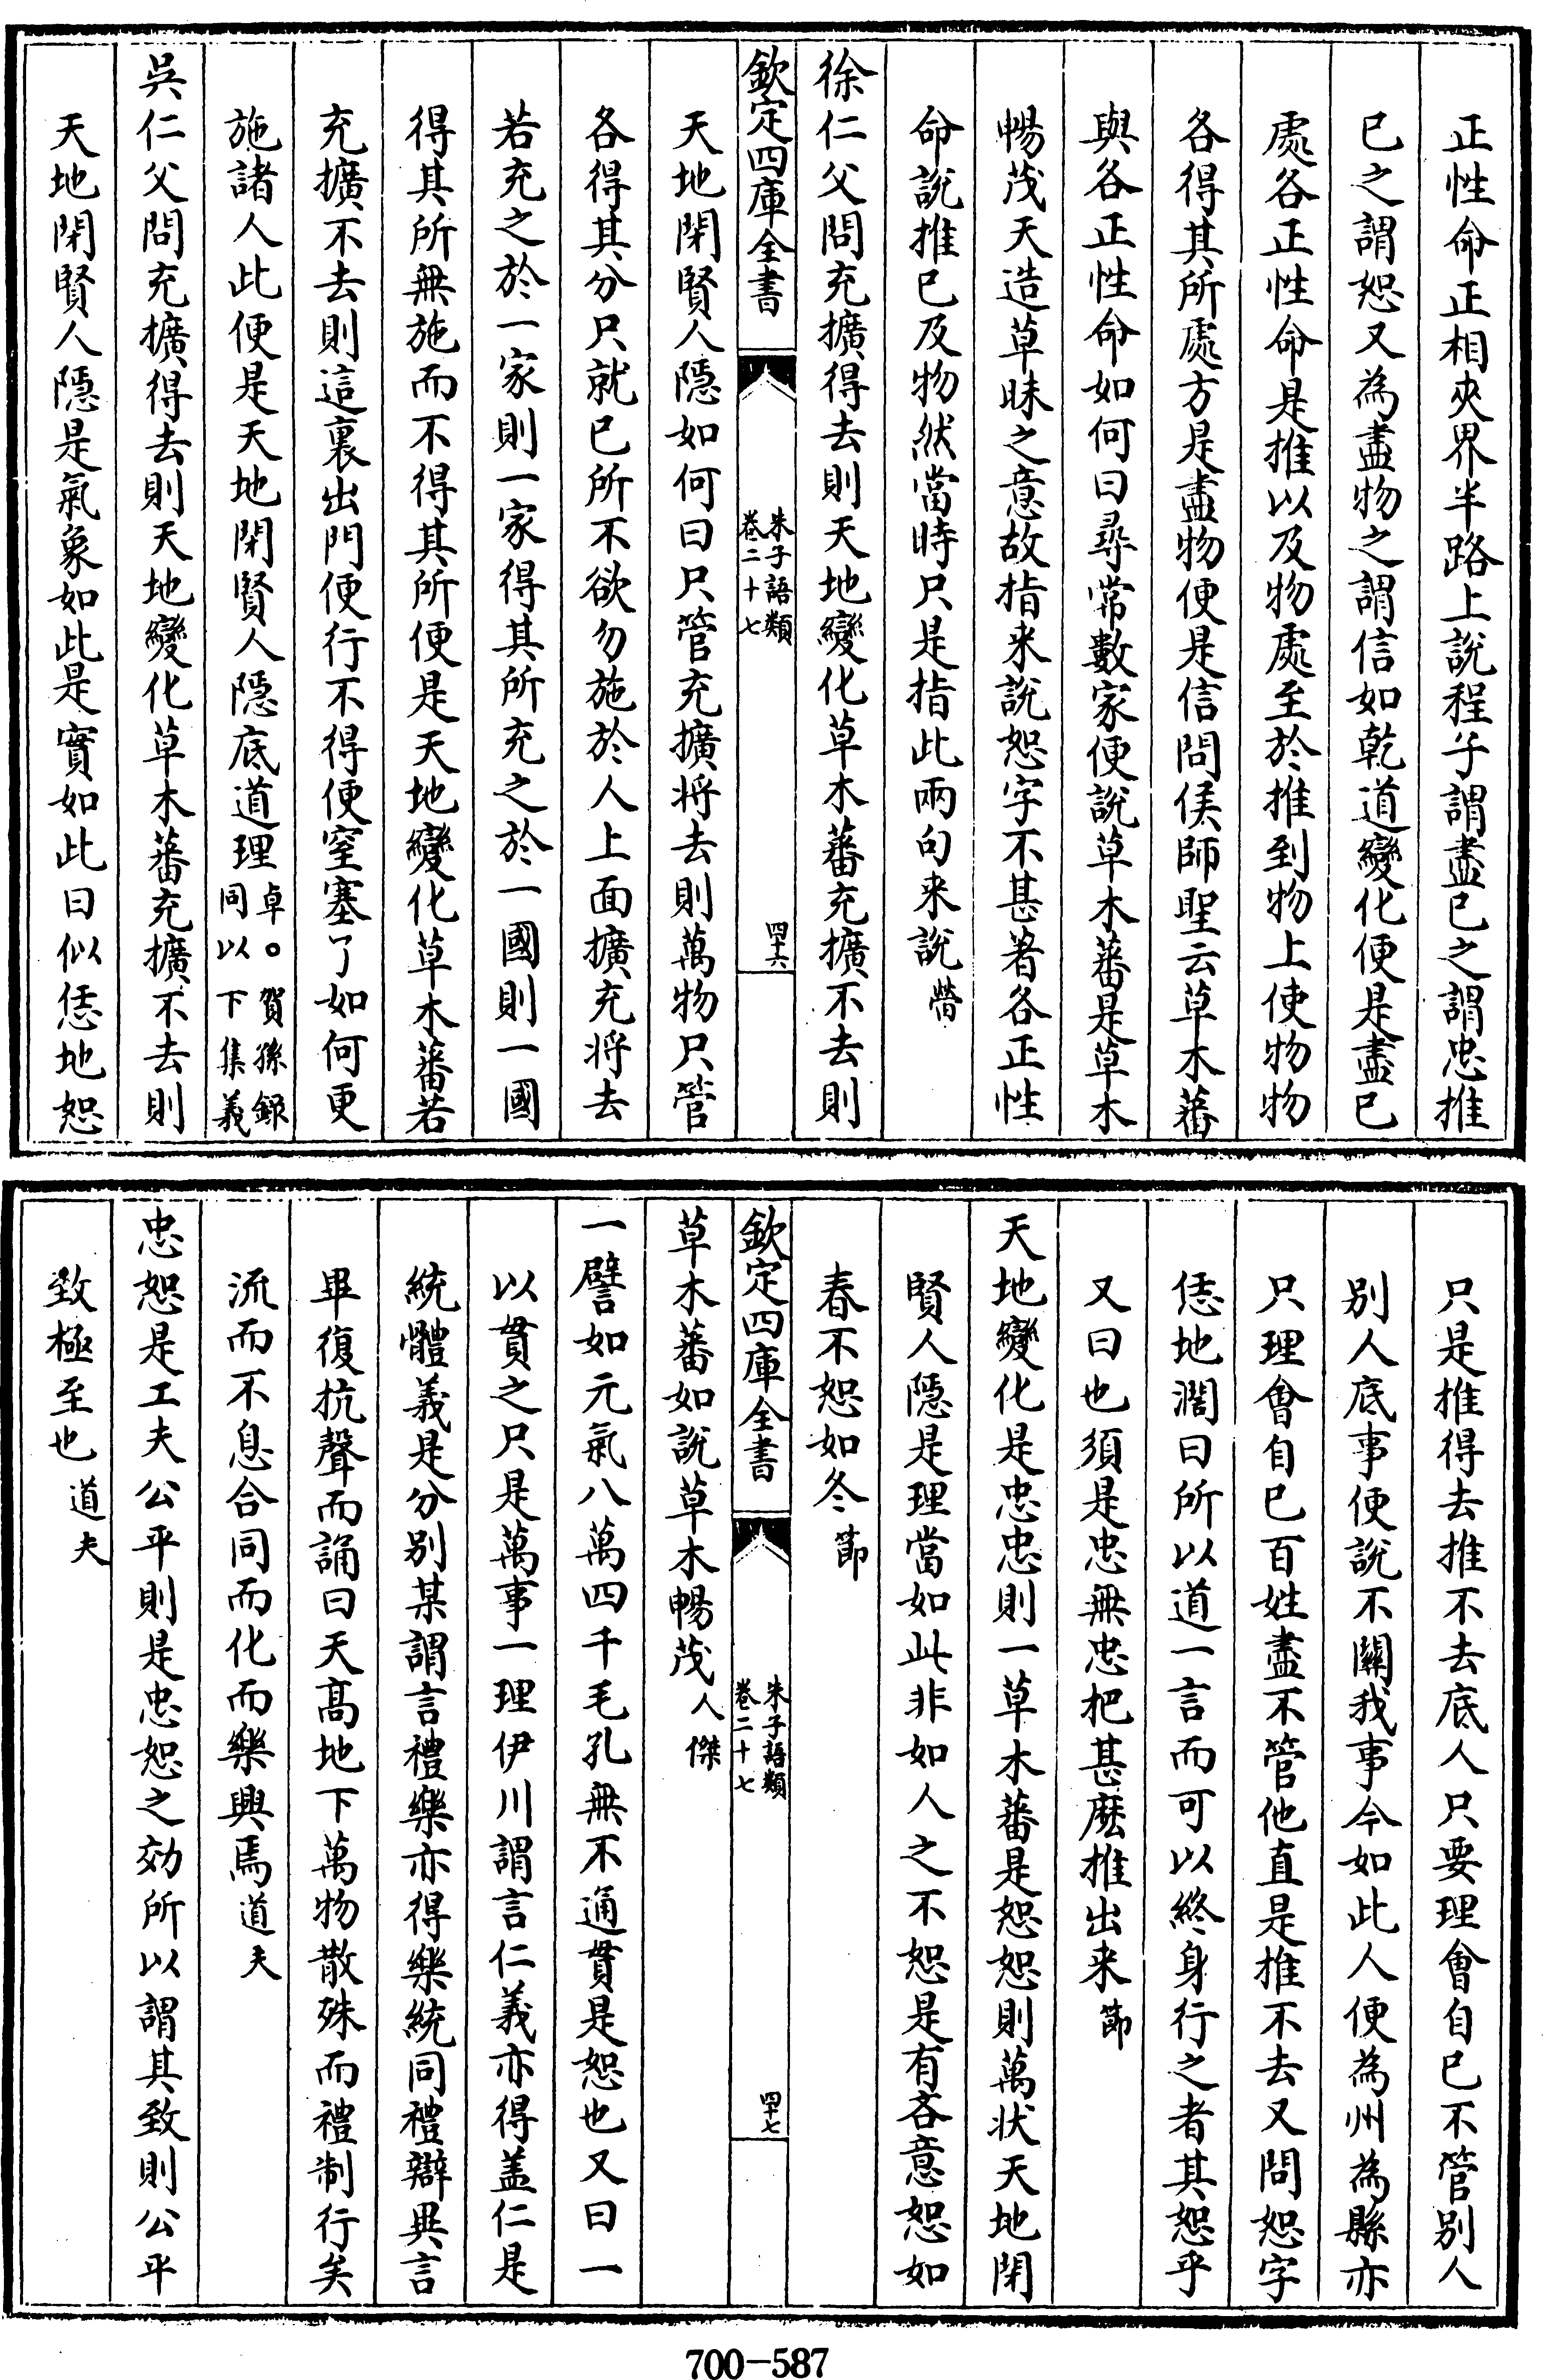 正性命正相夾界半路上說程子謂盡已之謂忠推
已之謂恕又為盡物之謂信如乾道變化便是盡已
處各正性命是推以及物處至於推到物上使物物
各得其所處方是盡物便是信問侯師聖云草木蕃
與各正性命如何曰尋常數家便說草木蕃是草木
暢茂天造草昧之意故指来說恕字不甚著各正性
命說推已及物然當時只是指此兩句来說㽦
徐仁父問充擴得去則天地變化草木蕃充擴不去則
欽定四庫全書
朱子語類
卷二十七
四十六
天地閉賢人隱如何曰只管充擴将去則萬物只管
各得其分只就已所不欲勿施於人上面擴充将去
若充之於一家則一家得其所充之於一國則一國
得其所無施而不得其所便是天地變化草木蕃若
充擴不去則這裏出門便行不得便窒塞了如何更
施諸人此便是天地閉賢人隱底道理卓○賀孫錄
同以下集義
吳仁父問充擴得去則天地變化草木蕃充擴不去則
天地閉賢人隱是氣象如此是實如此曰似恁地恕
只是推得去推不去底人只要理會自已不管别人
别人底事便說不關我事今如此人便為州為縣亦
只理會自已百姓盡不管他直是推不去又問恕字
恁地濶曰所以道一言而可以終身行之者其恕乎
又曰也須是忠無忠把甚麽推出来節
天地變化是忠忠則一草木蕃是恕恕則萬状天地閉
賢人隱是理當如此非如人之不恕是有吝意恕如
春不恕如冬節
欽定四庫全書
朱子語類
卷二十七
四十七
草木蕃如說草木暢茂人傑
一譬如元氣八萬四千毛孔無不通貫是恕也又曰一
以貫之只是萬事一理伊川謂言仁義亦得盖仁是
統體義是分别某謂言禮樂亦得樂統同禮辯異言
畢復抗聲而誦曰天髙地下萬物散殊而禮制行矣
流而不息合同而化而樂興焉道夫
忠恕是工夫公平則是忠恕之効所以謂其致則公平
致極至也道夫
700-587